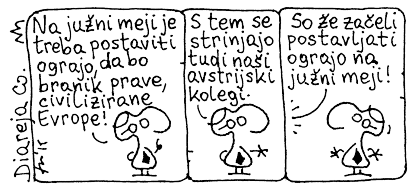 Diareja Co.
Na južni meji je
treba postaviti
ograjo, da bo
branik prave,
civilizirane
Evrope!
S tem se
strinjajo
tudi naši
avstrijski
kolegi.
So že začeli
postavljati
ograjo na
južni meji!